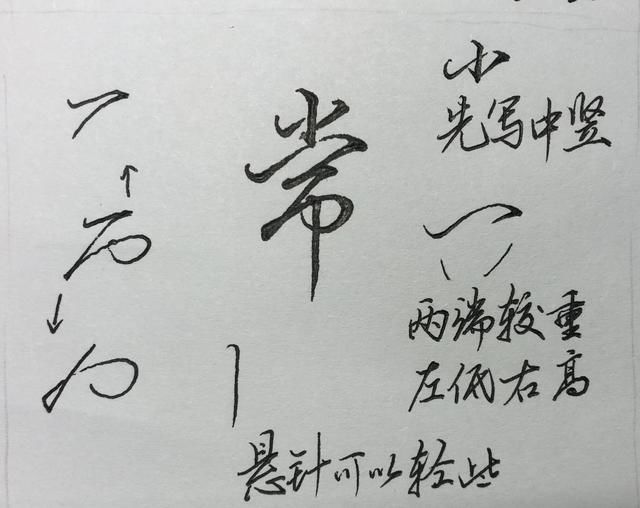 常
小
先写中竖
冖
两端较重
左低右高
悬针可以轻些